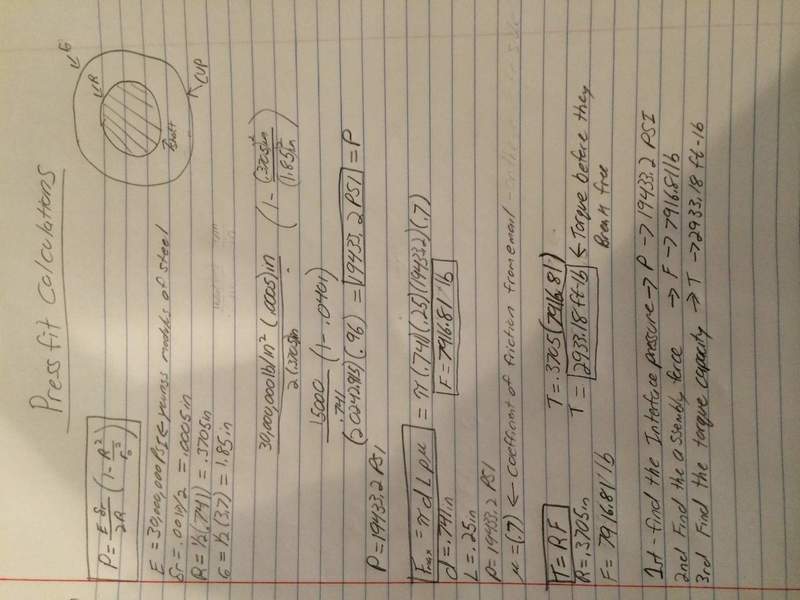 Pressfit Calculations
P = E δr / 2R (1 - R² / ro²)
E
R
Bolt
CUP
E = 30,000,000 PSI ← youngs modulus of steel
δr = .001in/2 = .0005in
R = 1/2(.741) = .3705in
G = 1/2(3.7) = 1.85in
30,000,000 lb/in² (.0005)in / 2(.3705)in (1 - (.3705in)² / (1.85)²in)
15000 / .741 (1 - .0401)
(20242.915)(.96) = 19433.2 PSI = P
P = 19433.2 PSI
Fmax = π d L p μ = π(.741)(.25)(19433.2)(.7)
d = .741in
F = 7916.81 lb
L = .25in
p = 19433.2 PSI
μ = (.7) ← Coefficient of friction from email
T = RF
T = .3705(7916.81)
R = .3705in
T = 2933.18 ft-lb ← Torque before they
Break free
F = 7916.81 lb
1st - find the Interface pressure → P → 19433.2 PSI
2nd Find the assembly force → F → 7916.81 lb
3rd Find the torque capacity → T → 2933.18 ft-lb